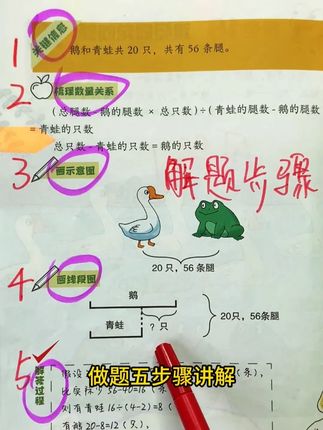 1
关键信息
鹅和青蛙共 20 只，共有 56 条腿。
2
梳理数量关系
（总腿数 - 鹅的腿数 × 总只数）÷（青蛙的腿数 - 鹅的腿数）
= 青蛙的只数
总只数 - 青蛙的只数 = 鹅的只数
3
画示意图
解题步骤
20 只，56 条腿
4
画线段图
鹅
青蛙
? 只
20只，56条腿
5
解答过程
假设
（条），
做题五步骤讲解
比实际少 56-40=16（条
则有青蛙 16÷(4-2)=8（
有鹅 20-8=12（只），